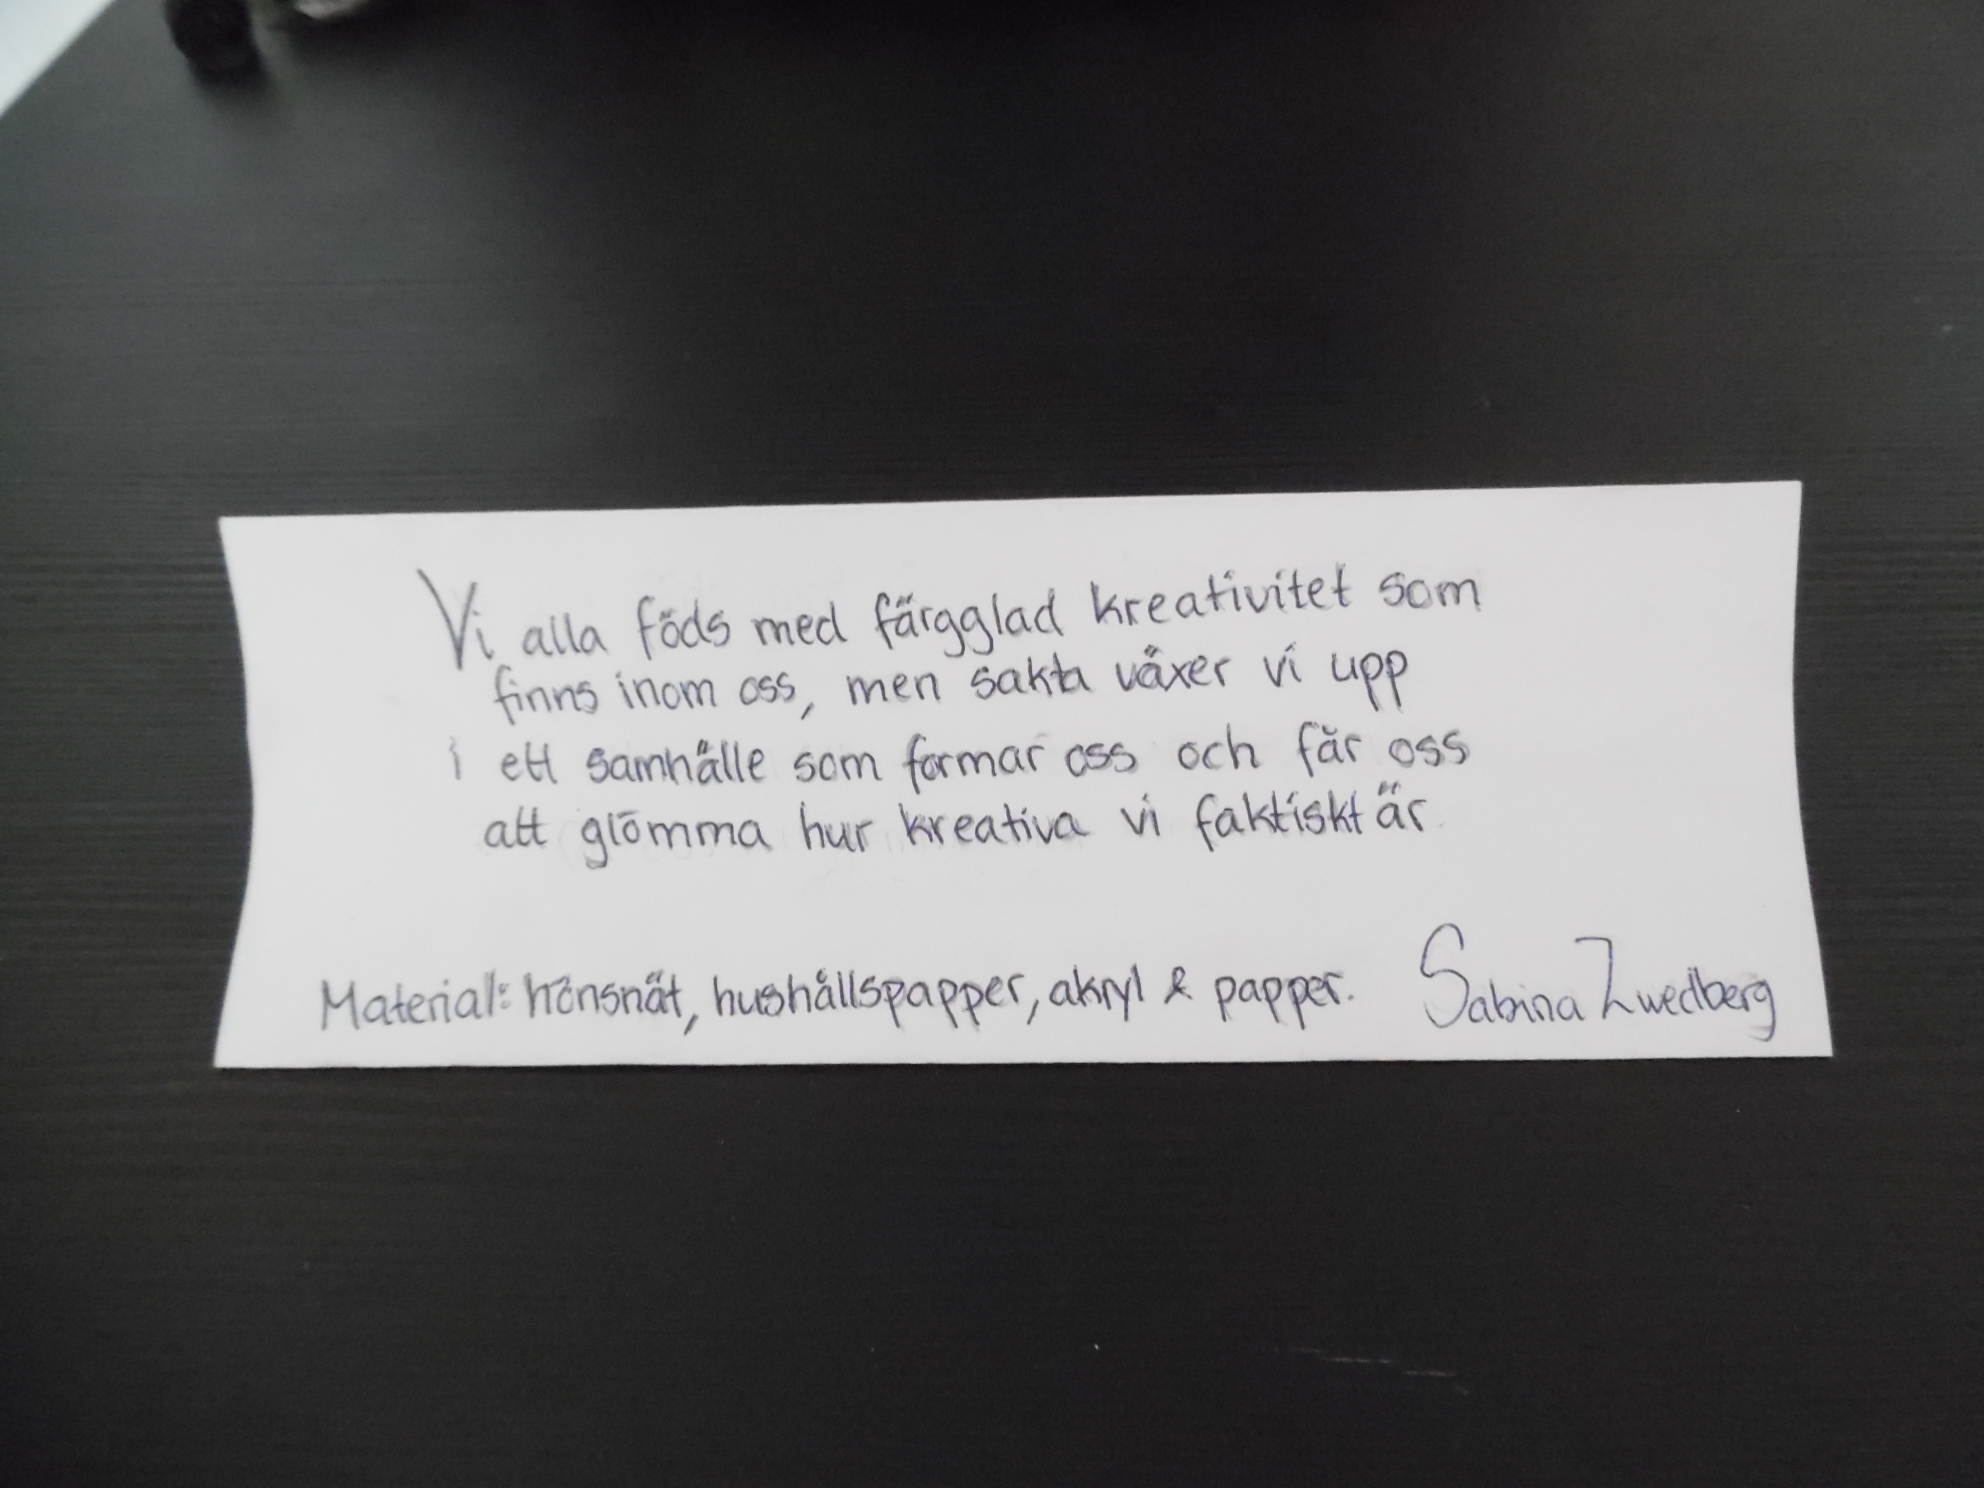 Vi alla föds med färgglad kreativitet som
finns inom oss, men sakta växer vi upp
i ett samhälle som formar oss och får oss
att glömma hur kreativa vi faktiskt är.
Material: hönsnät, hushållspapper, akryl & papper. Sabina Zwedberg